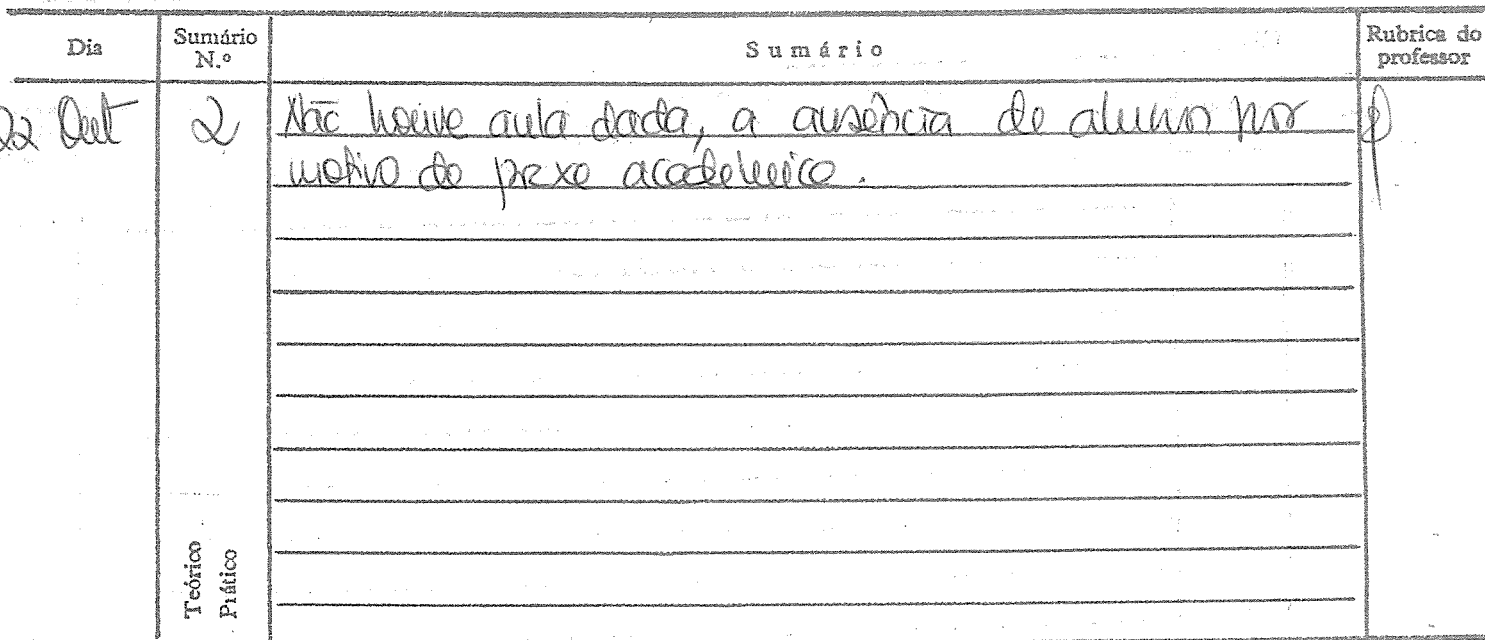 Dia Sumário N.º Sumário Rubrica do professor
22 Out 2 Não houve aula dada, a ausência de aluno por
motivo do prexe académico.
Teórico
Prático